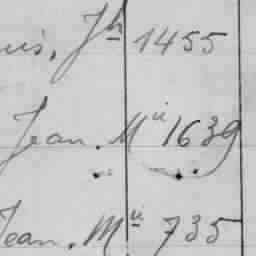 uis, Jh 1455
Jean. Mie 1639
Jean. Mie 735